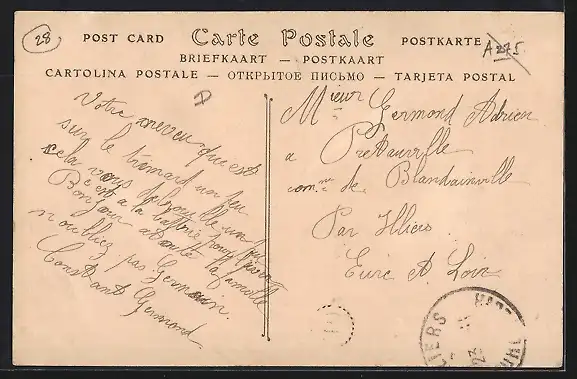 28
POST CARD Carte Postale POSTKARTE
A275
BRIEFKAART — POSTKAART
CARTOLINA POSTALE — ОТКРЫТОЕ ПИСЬМО — TARJETA POSTAL
Votre neveu que est
sur le trimard un peu
cela vous un peu
c'est a la pour
Bonjour a toute la famille
n'oubliez pas Germain.
Constant Germond
Mieur Germond Adrien
a
comne de Blandainville
Par Illiers
Eure et Loir
ILLIERS
23